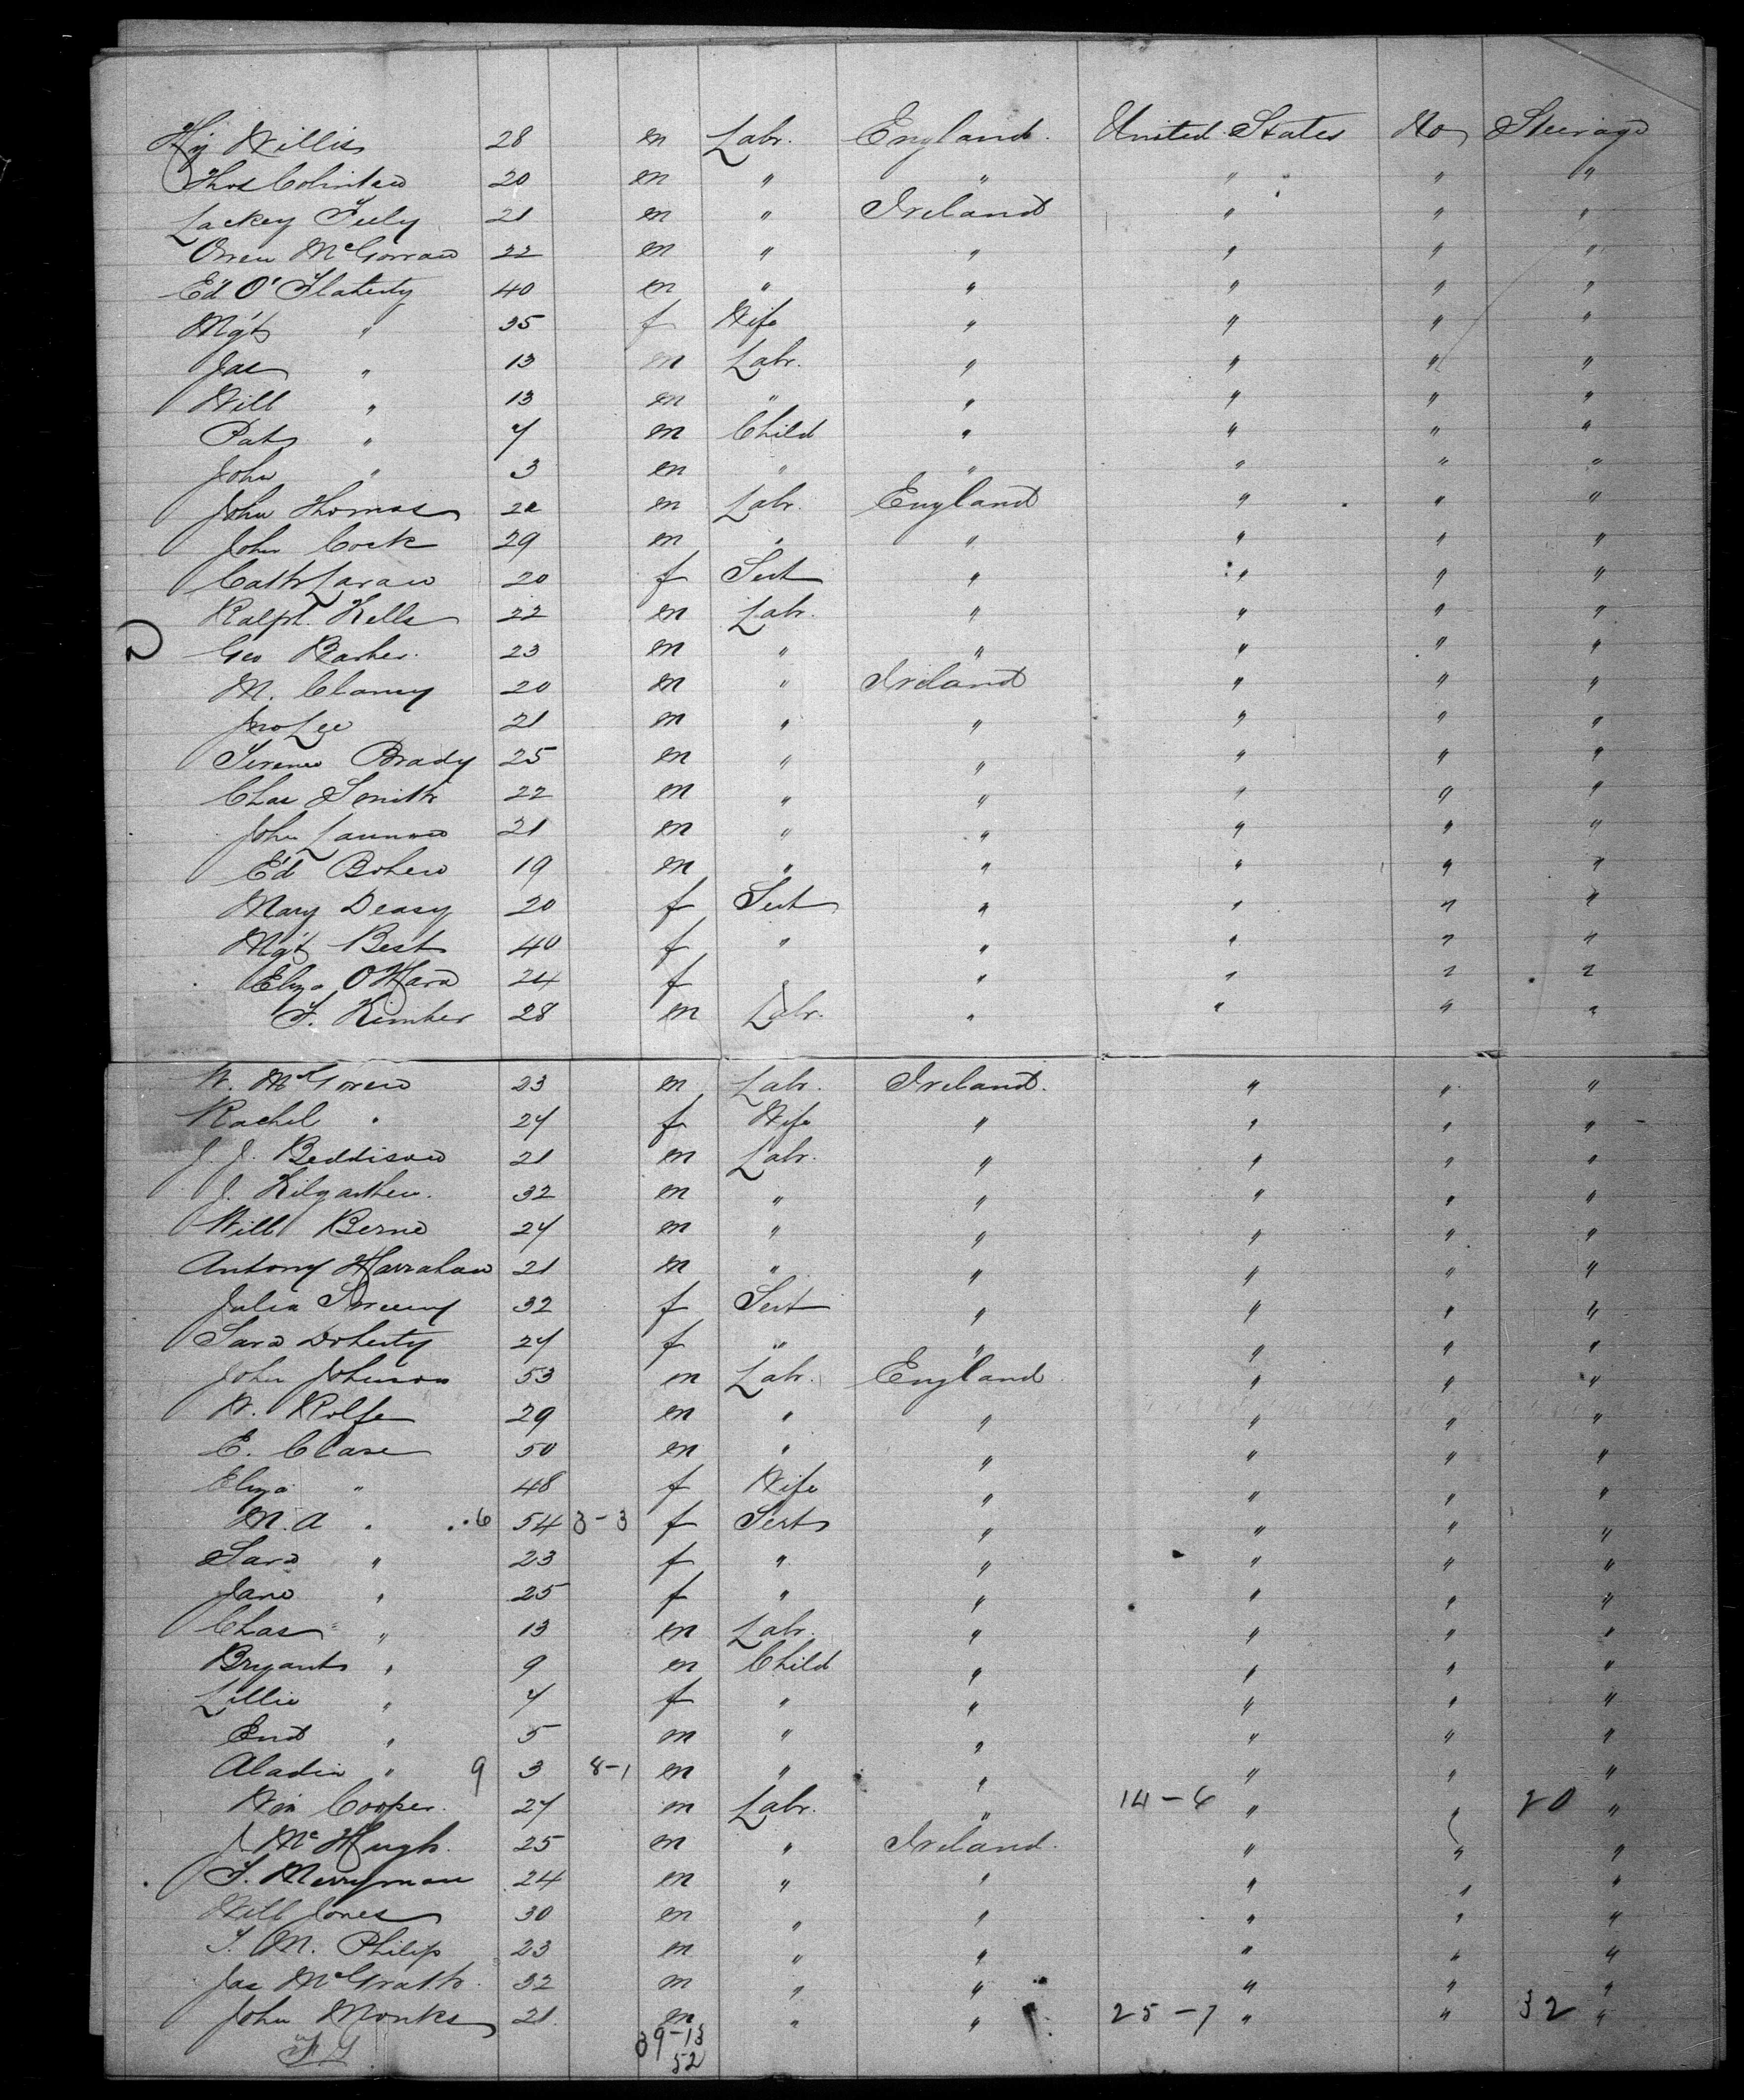 Hy Willis 28 m Labr. England. United States No Steerage
Thos 20 m " " " " "
Lackey Feely 21 m " Ireland " " "
Owen McGorran 22 m " " " " "
Ed O'Flaherty 40 m " " " " "
Mgt " 35 f Wife " " " "
Jas " 13 m Labr. " " " "
Will " 13 m " " " " "
Pat " 7 m Child " " " "
John " 3 m " " " " "
John Thomas 22 m Labr. England " " "
John Cock 29 m " " " " "
Cath Laran 20 f Sert " " " "
Ralph Kells 22 m Labr. " " " "
Geo Barker 23 m " " " " "
M. Clancy 20 m " Ireland " " "
Jno Lee 21 m " " " " "
Terence Brady 25 m " " " " "
Chas Smith 22 m " " " " "
John Lannon 21 m " " " " "
Ed Bohen 19 m " " " " "
Mary Deasy 20 f Sert " " " "
Mgt Best 40 f " " " " "
Eliza O'Hara 24 f " " " "
F. Kimber 28 m Labr. " " " "
W. McGoren 23 m Labr. Ireland. " " "
Rachel " 24 f Wife " " " "
J. J. Beddison 21 m Labr. " " " "
J. Kilgarthen. 32 m " " " " "
Will Berne 24 m " " " " "
Antony Harrahan 21 m " " " " "
Julia Sweeny 32 f Sert " " " "
Sara Doherty 24 f " " " " "
John Johnson 53 m Labr. England " " "
W. Rolfe 29 m " " " " "
E. Clase 50 m " " " " "
Eliza " 48 f Wife " " " "
M. A " 6 54 3-3 f Sert " " " "
Sara " 23 f " " " " "
Jane " 25 f " " " " "
Chas " 13 m Labr. " " " "
Bryant " 9 m Child " " " "
Lillie " 7 f " " " " "
" 5 m " " " " "
Aladin " 9 3 8-1 m " " " " "
Wm Cooper. 27 m Labr. " 14-6 " " 20 "
J McHugh. 25 m " Ireland. " " "
F. Merryman 24 m " " " " "
Will Jones 30 m " " " " "
T. M. Philip 23 m " " " " "
Jas McGrath. 32 m " " " " "
John Monks 21. m " " 25-7 " " 32 "
39-13
52